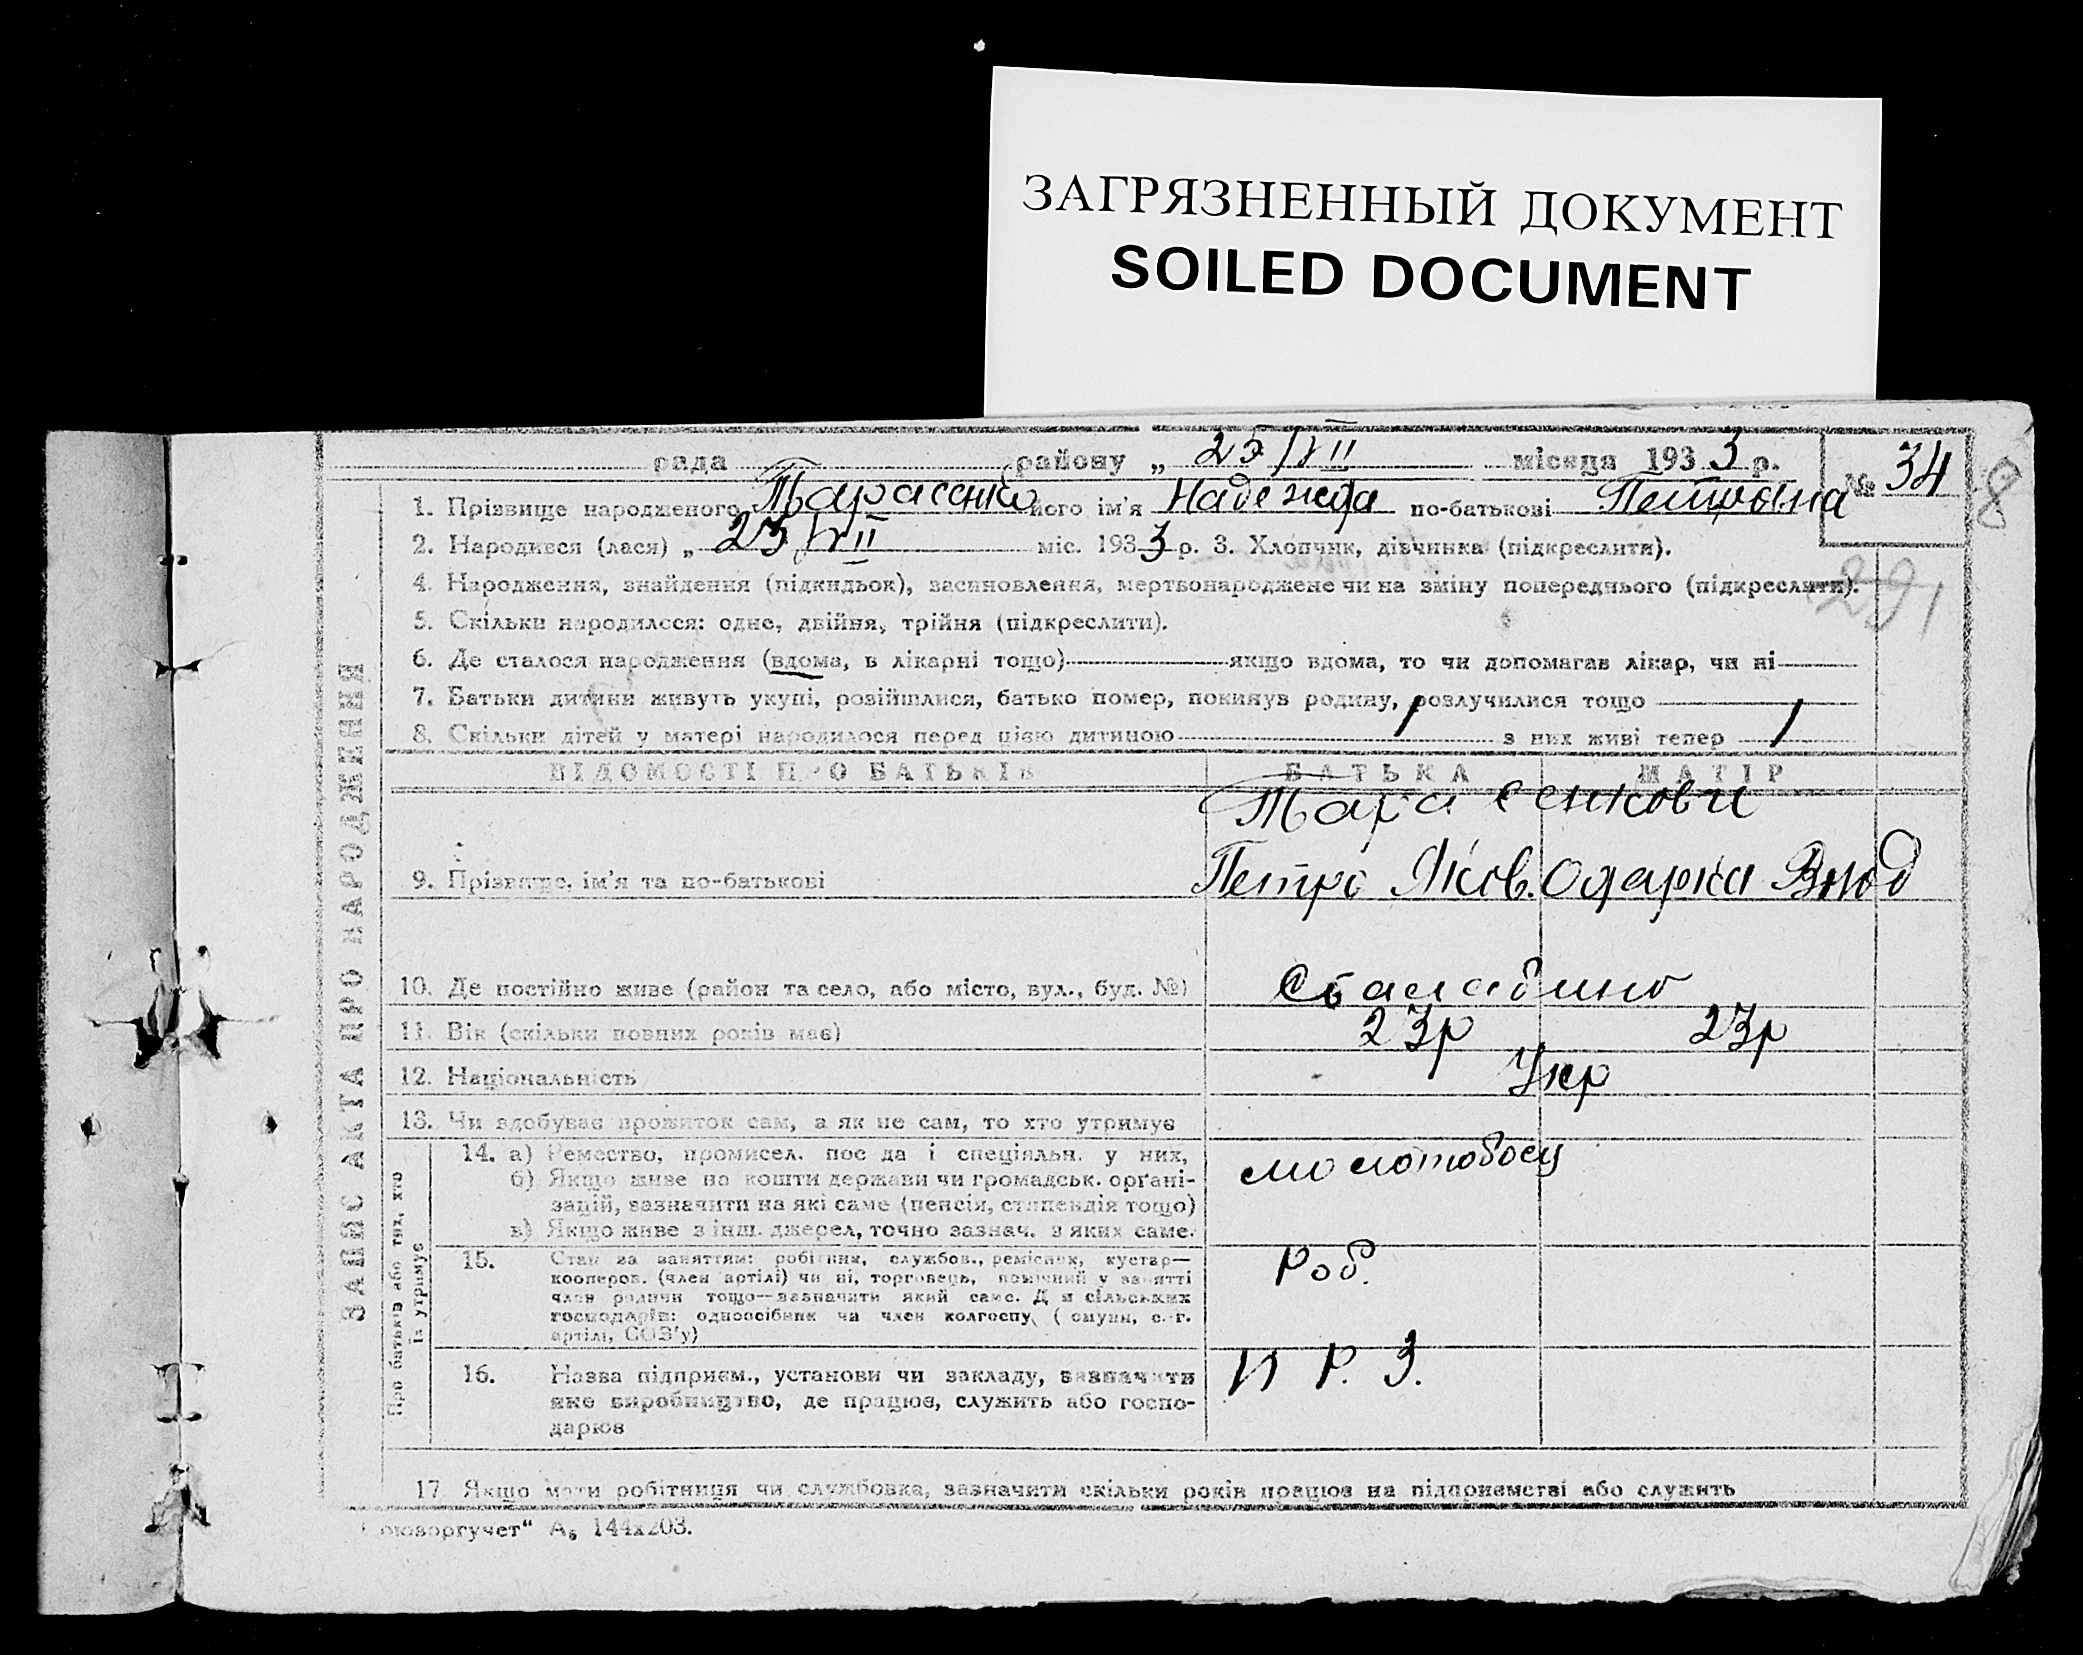 ЗАГРЯЗНЕННЫЙ ДОКУМЕНТ
SOILED DOCUMENT
рада району „ 25/VII місяця 1933 р. № 34
8
1. Прізвище народженого Тарасенко його ім'я Надежда по-батькові Петровна
2. Народився (лася) „ 23/VII міс. 1933 р. 3. Хлопчик, дівчинка (підкреслити).
291
4. Народження, знайдення (підкидьок), засиновлення, мертвонароджене чи на зміну попереднього (підкреслити).
5. Скільки народилося: одне, двійня, трійня (підкреслити).
6. Де сталося народження (вдома, в лікарні тощо) якщо вдома, то чи допомагав лікар, чи ні
7. Батьки дитини живуть укупі, розійшлися, батько помер, покинув родину, розлучилися тощо
8. Скільки дітей у матері народилося перед цією дитиною 1 з них живі тепер 1
ЗАПИС АКТА ПРО НАРОДЖЕННЯ
ВІДОМОСТІ ПРО БАТЬКІВ БАТЬКА МАТІР
Тарасенкови
9. Прізвище, ім'я та по-батькові Петро Яков. Одарка
10. Де постійно живе (район та село, або місто, вул., буд. №)
11. Вік (скільки повних років має) 23р 23р
12. Національність Укр
13. Чи здобуває прожиток сам, а як не сам, то хто утримує
Про батьків або тих, хто
їх утримує
14. а) Ремество, промисел. пос да і спеціяльн. у них, молотобоец
б) Якщо живе на кошти держави чи громадськ. орґані-
зацій, зазначити на які саме (пенсія, стипендія тощо)
в) Якщо живе з інш. джерел, точно зазнач. з яких саме.
15. Стан за заняттям: робітник, службов., ремісник, кустар— Роб.
кооперов. (член артілі) чи ні, торговець, помічний у занятті
член родини тощо—зазначити який саме. Д я сільських
господарів: одноосібник чи член колгоспу ( омуни, с.-г.
артілі, СОЗ'у)
16. Назва підприєм., установи чи закладу, зазначити И Р. З.
яке виробництво, де працює, служить або госпо-
дарює
17 Якщо мати робітниця чи службовка, зазначити скільки років працює на підприємстві або служить
оюзоргучет" А₅ 144х203.